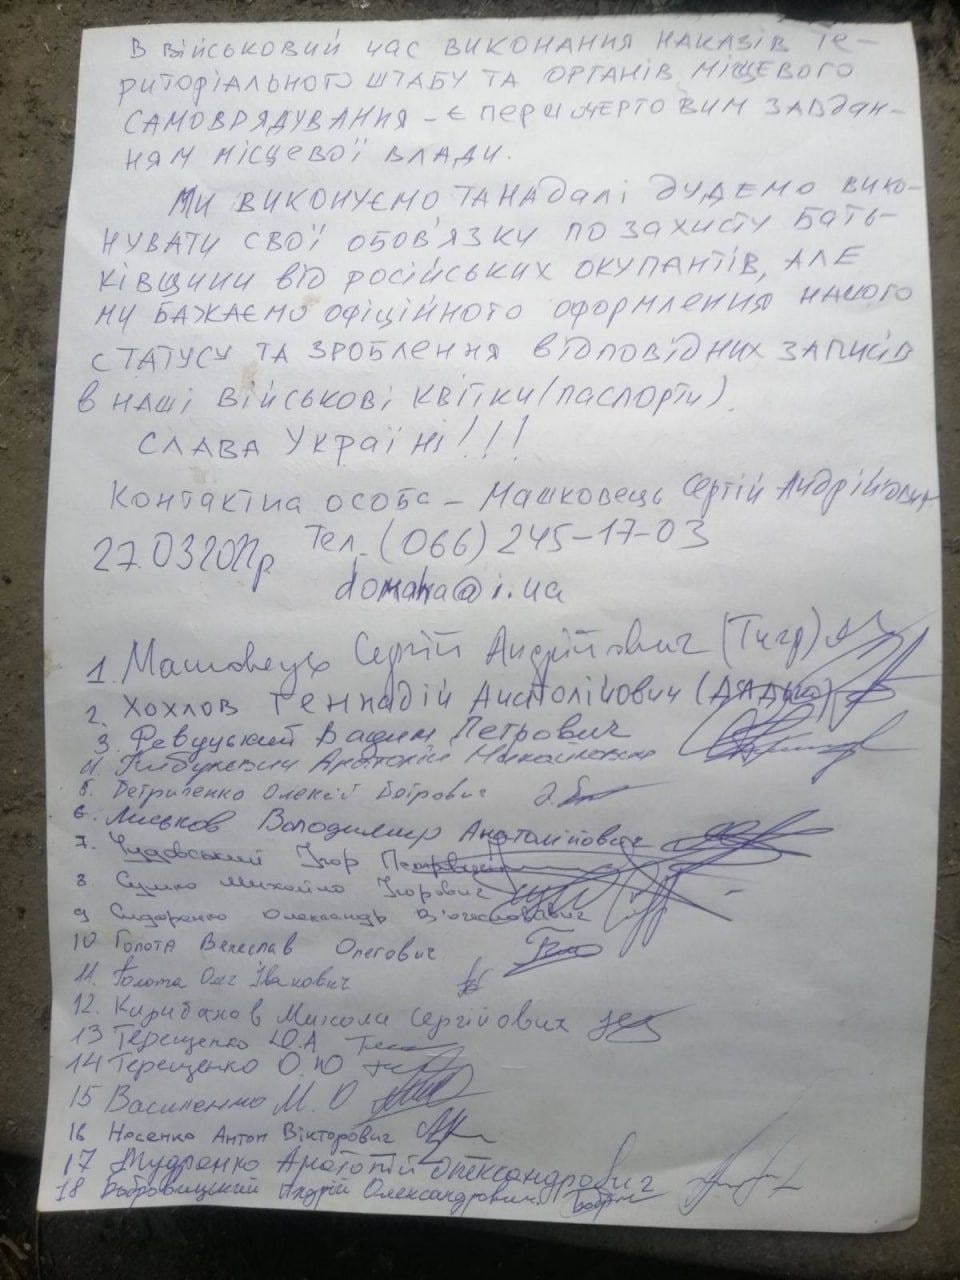 В військовий час виконання наказів те-
риторіального штабу та органів місцевого
самоврядування – є першчертовим завдан-
ням місцевої влади.
Ми виконуємо та надалі будемо вико-
нувати свої обов'язки по захисту Бать-
ківщини від російських окупантів, але
ми бажаємо офіційного оформлення нашого
статусу та зроблення відповідних записів
в наші військові квітки (паспорти).
Слава Україні!!!
Контактна особа – Машковець Сергій Андрійович
27.03.2022р Тел. (066) 245-17-03
domaha@i.ua
1. Машовець Сергій Андрійович (Тигр)
2. Хохлов Геннадій Анатолійович (Дядько)
3. Ревуцький Вадим Петрович
4. Анатолій Михайлович
5. Петриченко Олексій Петрович
6. Лиськов Володимир Анатолійович
7. Чудовський Ігор Петрович
8. Сушко Михайло Ігорович
9 Сидоренко Олександр В'ячеславович
10 Голота Велеслав Олегович
11. Голота Олег Іванович
12. Микола Сергійович
13 Терещенко Ю.А
14 Терещенко О.Ю
15 Василенко М.О
16 Носенко Антон Вікторович
17 Мудренко Анатолій Олександрович
18 Бобровицький Андрій Олександрович